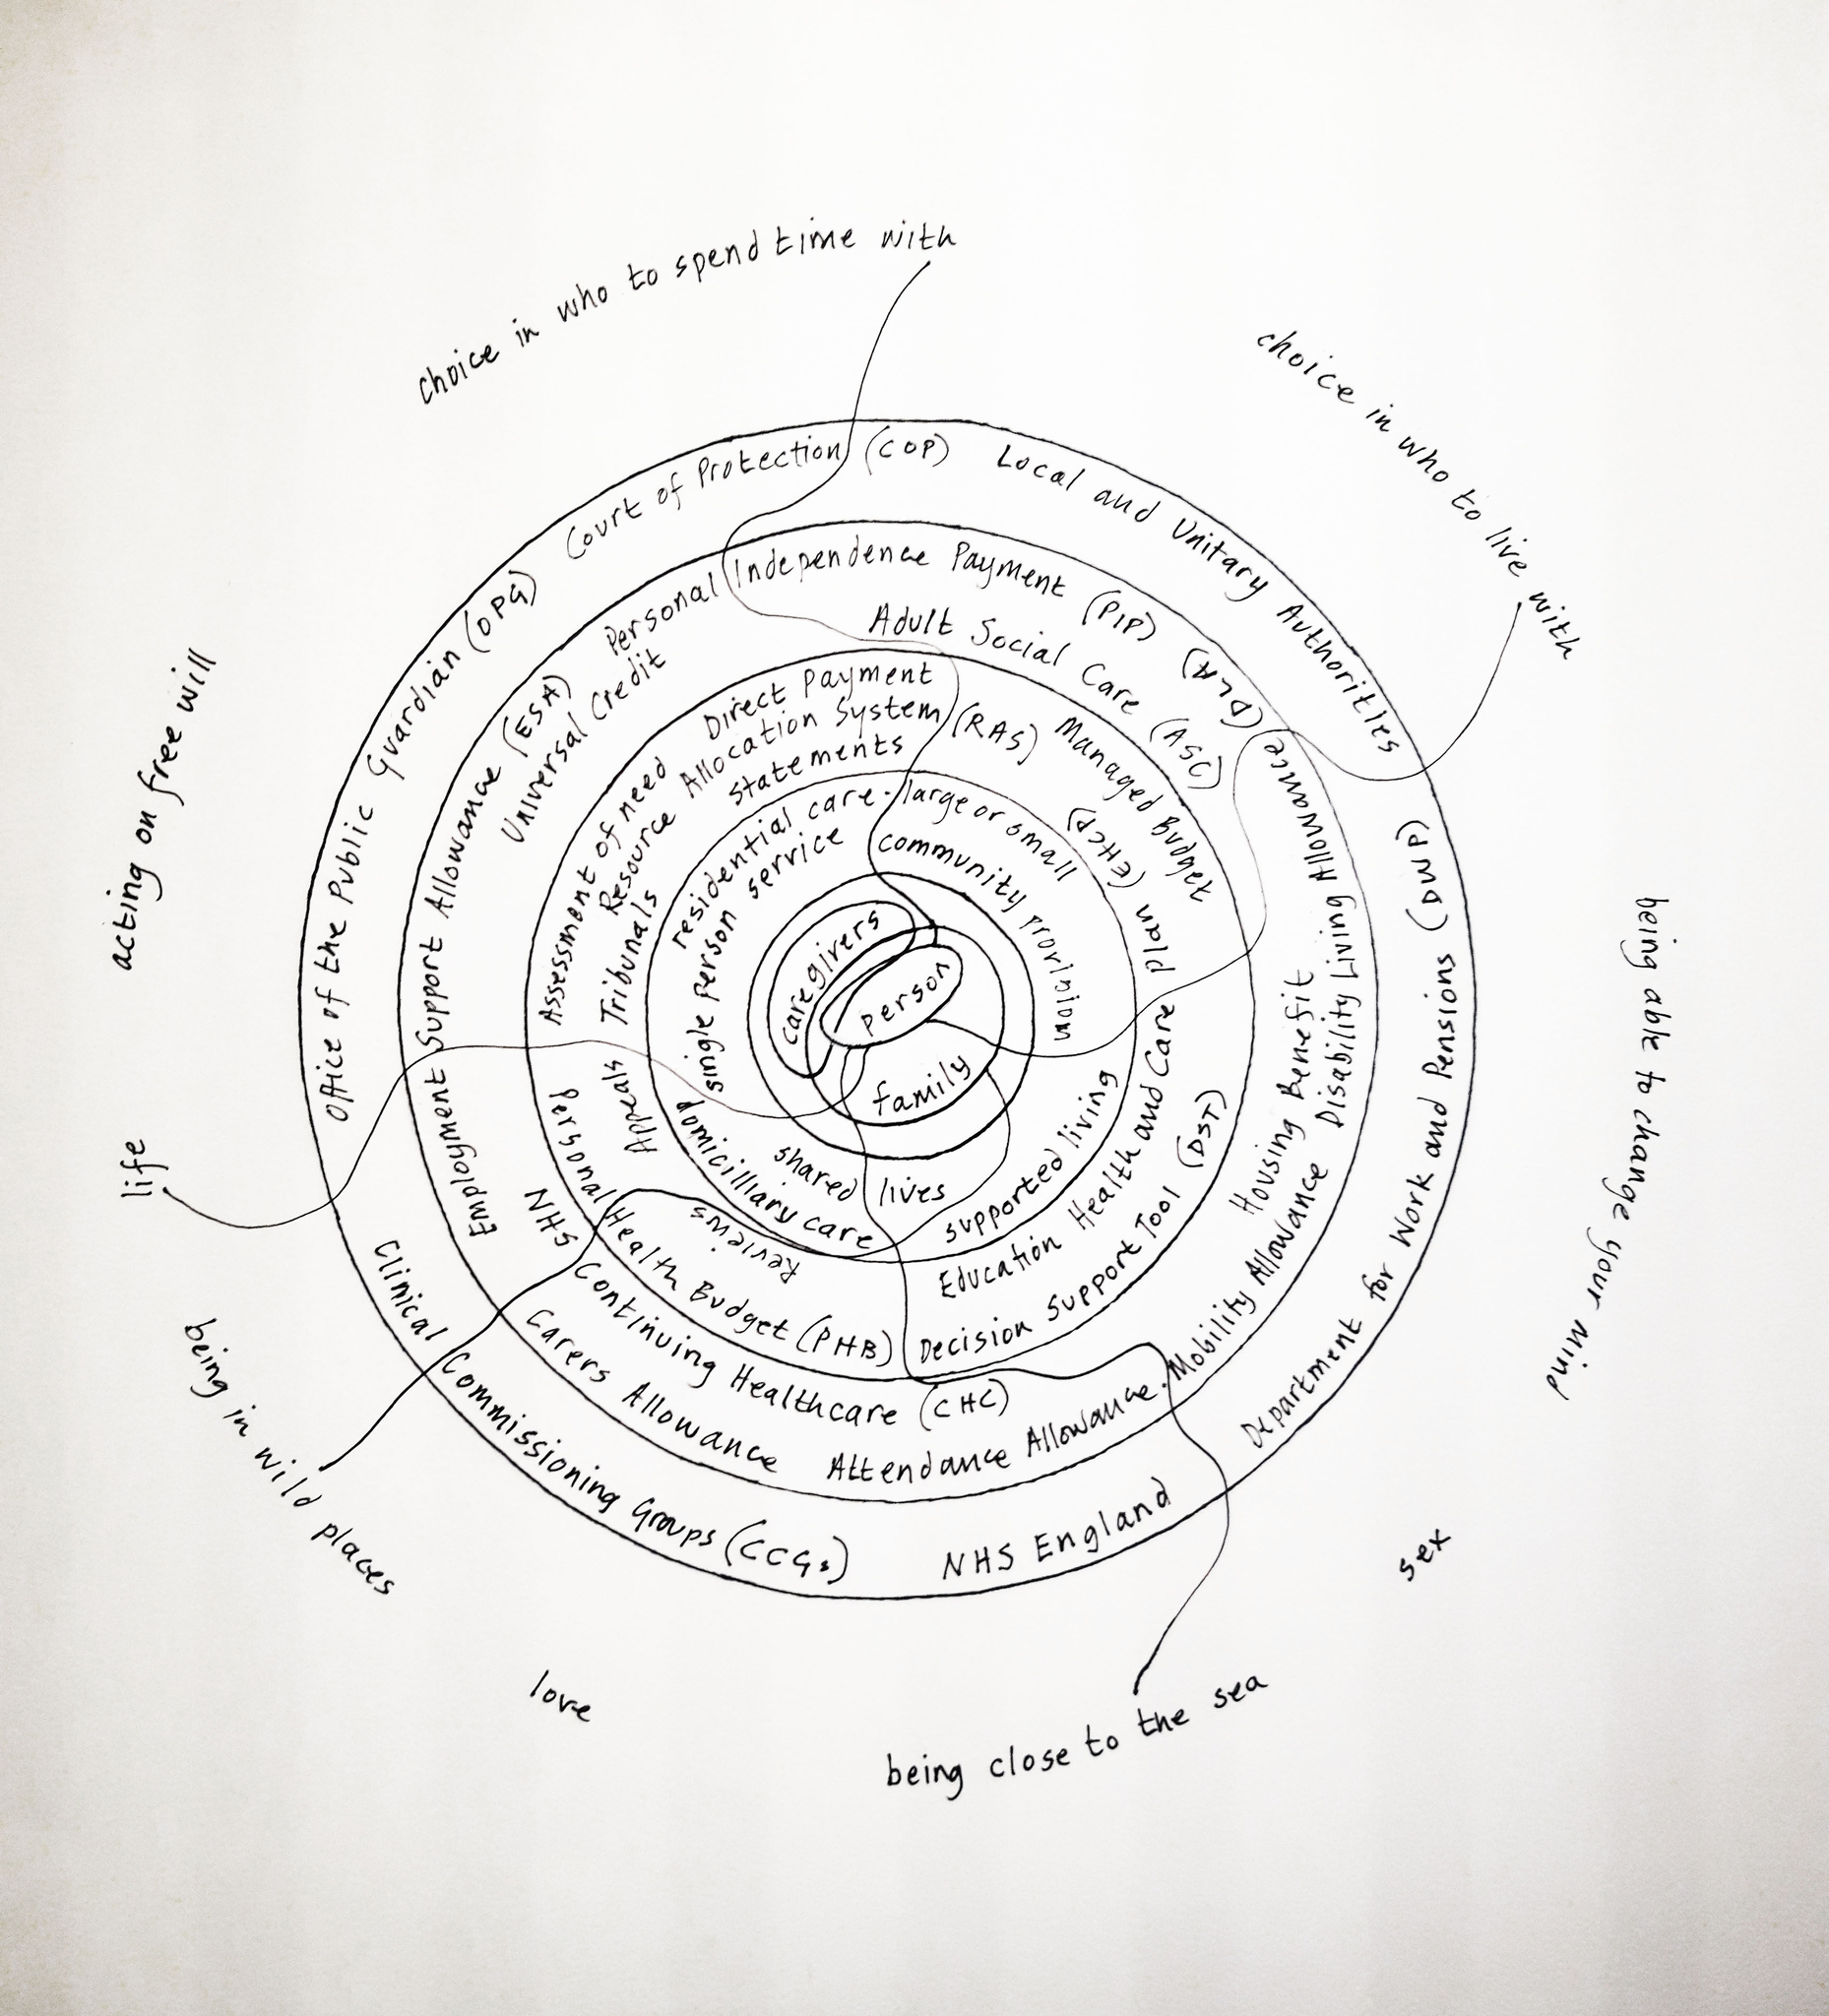 choice in who to spend time with
choice in who to live with
being able to change your mind
sex
being close to the sea
love
being in wild places
life
acting on free will
Court of Protection (COP)
Local and Unitary Authorities
Department for Work and Pensions (DWP)
NHS England
Clinical Commissioning Groups (CCGs)
Office of the Public Guardian (OPG)
Personal Independence Payment (PIP)
Disability Living Allowance (DLA)
Mobility Allowance
Attendance Allowance
Carers Allowance
Employment Support Allowance (ESA)
Universal Credit
Adult Social Care (ASC)
Housing Benefit
NHS Continuing Healthcare (CHC)
Direct Payment
Managed Budget
Decision Support Tool (DST)
Personal Health Budget (PHB)
Assessment of need
Resource Allocation System (RAS)
Statements
Education Health and Care plan (EHCP)
Reviews
Appeals
Tribunals
residential care. large or small
supported living
domicilliary care
single person service
community provision
shared lives
caregivers
person
family